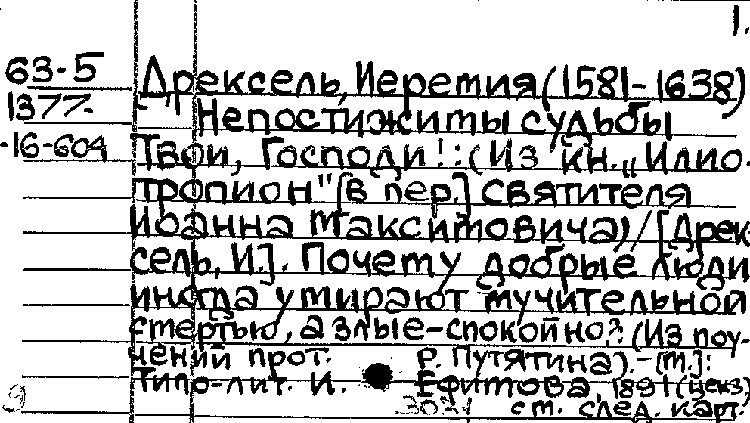 1.
63-5 Дрексель, Иеремия (1581-1638)
1377- Непостижиты судьбы
-16-604 Твои, Господи!: (Из кн. „Илио-
тропион" [в пер.] святителя
Иоанна Максимовича) / [Дрек-
сель, И.]. Почему добрые люди
иногда умирают мучительной
смертью, а злые-спокойно?: (Из поу-
чений прот. Р. Путятина). - [М.]:
Типо-лит. И. Ефимова, 1891 (ценз)
см. след. карт.